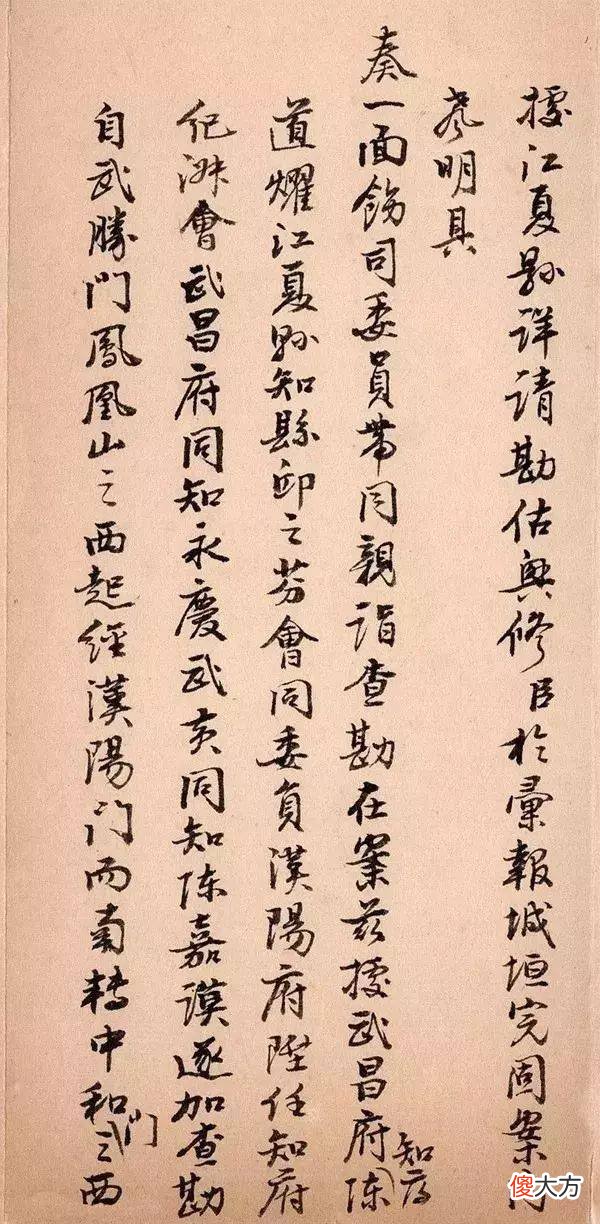 據江夏縣詳請勘估興修臣於彙報城垣完固案内
声明具
奏一面飭司委員帶同親詣查勘在案茲據武昌府知府陳
道燿江夏縣知縣邱之芬會同委員漢陽府陞任知府
會武昌府同知永慶武黄同知陳嘉謨逐加查勘
自武勝門鳳凰山之西起經漢陽门而南轉中和门之西
傻大方